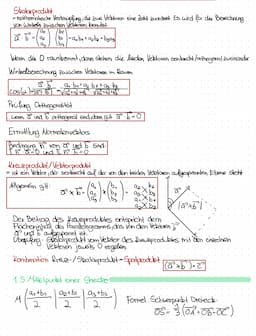 Skalarprodukt
- mathematische Verknüpfung die zwei Vektoren eine Zahl zuordnet. Es wird für die Berechnung
von Winkeln zwischen Vektoren benutzt
a · b = (a₁ a₂ a₃) · (b₁ b₂ b₃) = a₁·b₁ + a₂·b₂ + b₃·a₃
Wenn die 0 rauskommt, dann stehen die beiden Vektoren senkrecht/orthogonal zueinander
Winkelberechnung zwischen Vektoren im Raum
Prüfung Orthogonalität
Wenn a und b orthogonal sind, dann gilt a · b = 0
Ermittlung Normalenvektors
Bedingung n von a und b sind
n · a = 0 und n · b = 0
Kreuzprodukt/Vektorprodukt
= ist ein Vektor der senkrecht auf der von den beiden Vektoren aufgespannten Ebene steht
Allgemein gilt:
a × b = (a₁ a₂ a₃) × (b₁ b₂ b₃) =
|a × b|
Der Betrag des Kreuzproduktes entspricht dem
Flächeninhalt des Parallelogramms, das von den Vektoren
a und b aufgespannt ist.
Überprüfung: Skalarprodukt vom Vektor des Kreuzproduktes mit den einzelnen
Vektoren jeweils 0 ergeben
Kombination Kreuz-/Skalarprodukt = Spatprodukt (a × b) · c
1.5 Mittelpunkt einer Strecke
M (a₁+b₁/2 | a₂+b₂/2 | a₃+b₃/2)
Formel Schwerpunkt Dreieck
OS = 1/3 (OA + OB + OC)